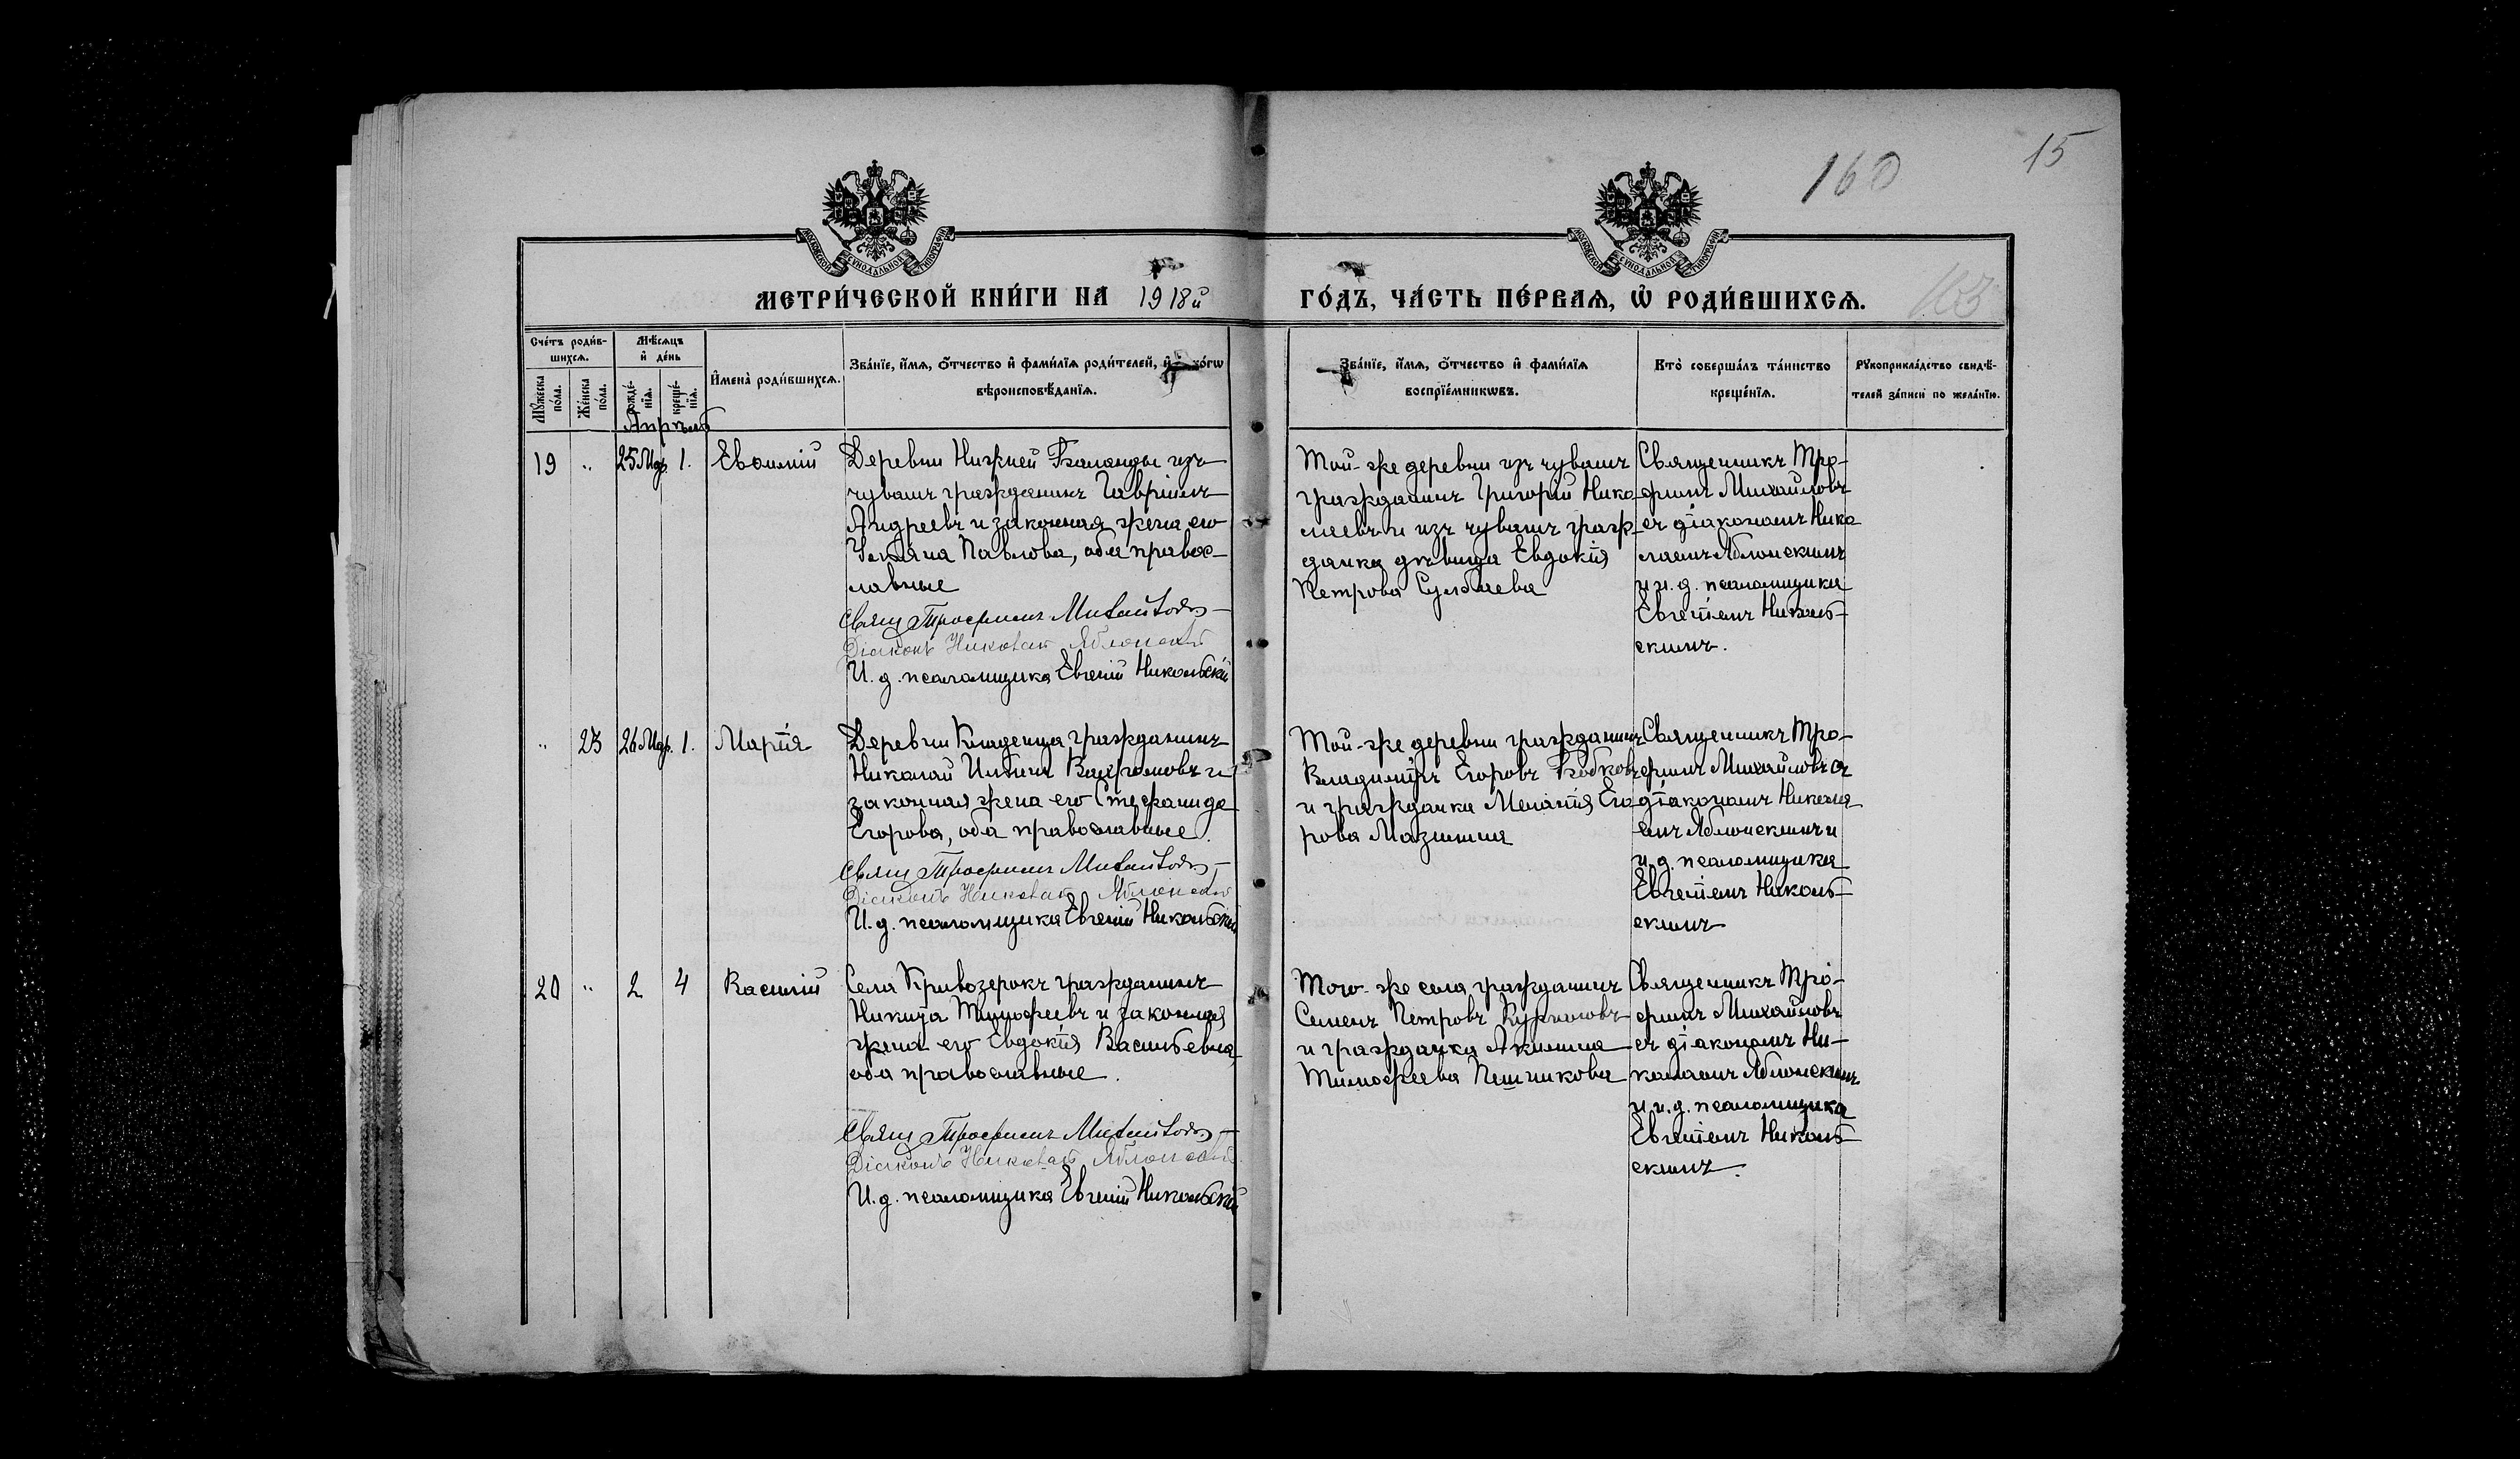 160
15
МОСКОВСКОЙ СѴНОДАЛЬНОЙ ТИПОГРАФІИ
МОСКОВСКОЙ СѴНОДАЛЬНОЙ ТИПОГРАФІИ
МЕТРИ́ЧЕСКОЙ КНИ́ГИ НА 1918й
ГО́ДЪ, ЧА́СТЬ ПЕ́РВАѦ, Ѡ҆ РОДИ́ВШИХСѦ.
163
Сче́тъ роди́в-
шихсѧ.
Мѣ́сѧцъ
и҆ де́нь
Мꙋ́жеска по́ла.
Же́нска по́ла.
рожде́-
нїѧ.
креще́-
нїѧ.
И҆мена̀ роди́вшихсѧ.
Зва́нїе, и҆́мѧ, ѻ҆́тчество и҆ фами́лїѧ роди́телей, и҆ ко́гѡ
вѣроисповѣ́данїѧ.
Зва́нїе, и҆́мѧ, ѻ҆́тчество и҆ фами́лїѧ
воспрїе́мникѡвъ.
Кто̀ соверша́лъ та́инство
креще́нїѧ.
Рꙋкоприкла́дство свидѣ́-
телей за́писи по жела́нїю.
Апрѣль
19 " 25 Мар. 1.
Деревни Нижней Баланды изъ
чувашъ гражданинъ Гавріилъ
Андреевъ и законная жена его
Павлова, оба правос-
лавные
Свящ Трофимъ Михайловъ
Діаконъ Николай Яблонскій
И. д. псаломщика Евгеній Никольскій
Той-же деревни изъ чувашъ
гражданинъ Григорій Нико
лаевъ и изъ чувашъ граж-
данка дѣвица Евдокія
Петрова
Священникъ Тро-
фимъ Михайловъ
съ діакономъ Нико
лаемъ Яблонскимъ
и и. д. псаломщика
Евгеніемъ Николь-
скимъ.
" 23 26 Мар. 1. Марія
Деревни Кладенца гражданинъ
Николай Ильинъ и
законная жена его Стефанида
Егорова, оба православные.
Свящ Трофимъ Михайловъ
Діаконъ Николай Яблонскій
И. д. псаломщика Евгеній Никольскій
Той-же деревни гражданинъ
Владиміръ Егоровъ
и гражданка Меланія Его
рова Мазинина
Священникъ Тро-
фимъ Михайловъ съ
діакономъ Никола
емъ Яблонскимъ и
и. д. псаломщика
Евгеніемъ Николь-
скимъ
20 " 2 4 Василій
Села Кривозерокъ гражданинъ
Никита Тимофеевъ и законная
жена его Евдокія Васильевна,
оба православные.
Свящ Трофимъ Михайловъ
Діаконъ Николай Яблонскій
И. д. псаломщика Евгеній Никольскій
Того-же села гражданинъ
Семенъ Петровъ
и гражданка Акилина
Тимофеева Пешникова
Священникъ Тро-
фимъ Михайловъ
съ діакономъ Ни-
колаемъ Яблонскимъ
и и. д. псаломщика
Евгеніемъ Николь-
скимъ.